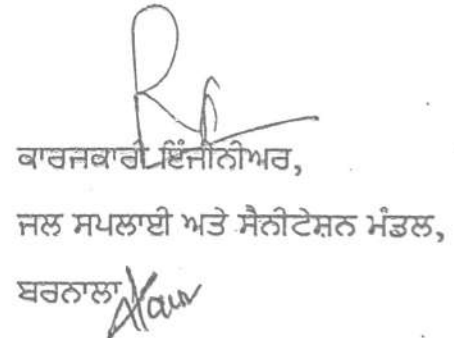 ਕਾਰਜਕਾਰੀ ਇੰਜੀਨੀਅਰ,
ਜਲ ਸਪਲਾਈ ਅਤੇ ਸੈਨੀਟੇਸ਼ਨ ਮੰਡਲ,
ਬਰਨਾਲਾ